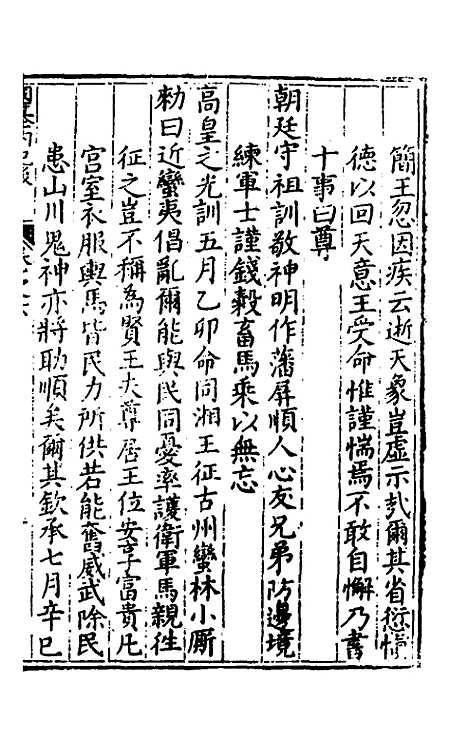 簡王忽因疾云逝天象豈虛示哉爾其省愆慎
德以回天意王受命惟謹惴焉不敢自懈乃書
十事曰尊
朝廷守祖訓敬神明作藩屏順人心友兄弟防邊境
練軍士謹錢穀畜馬乘以無忘
高皇之光訓五月乙卯命同湘王征古州蠻林小廝
勑曰近蠻夷倡亂爾能與民同憂率護衛軍馬親往
征之豈不稱為賢王夫尊居王位安享富貴凡
宮室衣服輿馬皆民力所供若能奮威武除民
患山川鬼神亦將助順矣爾其欽承七月辛巳